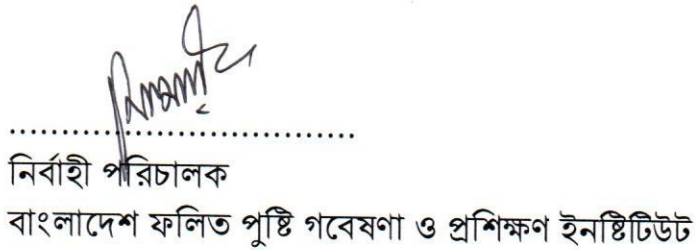 ....................................
নির্বাহী পরিচালক
বাংলাদেশ ফলিত পুষ্টি গবেষণা ও প্রশিক্ষণ ইনষ্টিটিউট